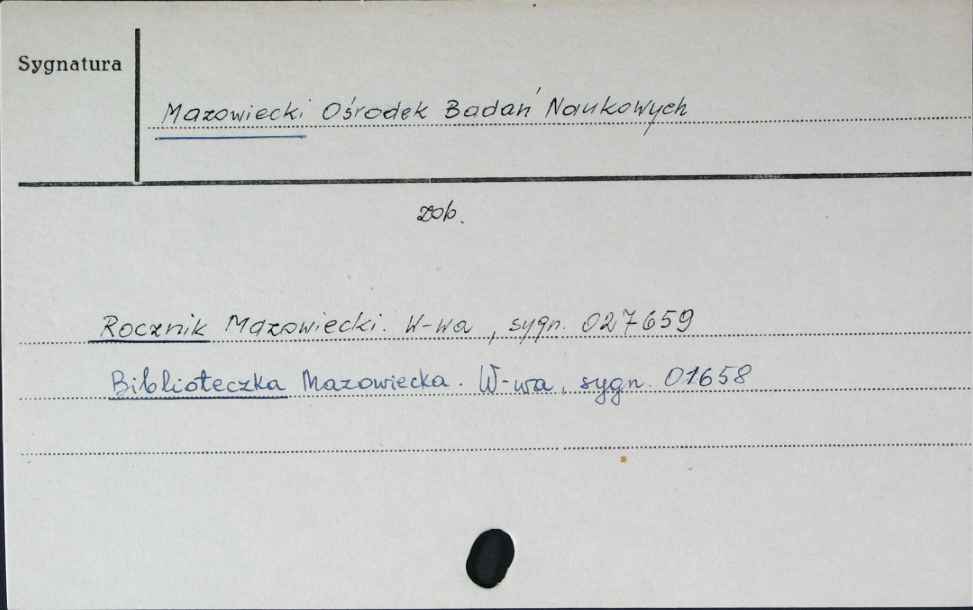 Sygnatura
Mazowiecki Ośrodek Badań Naukowych
zob.
Rocznik Mazowiecki. W-wa, sygn. 027659
Biblioteczka Mazowiecka. W-wa, sygn. 01658